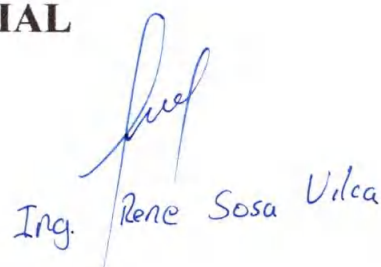 IAL
Ing. Rene Sosa Vilca